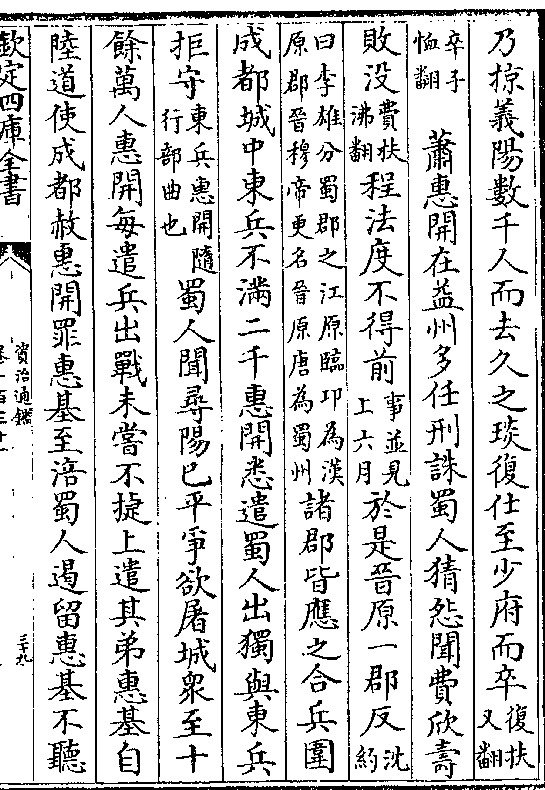 乃掠義陽數千人而去久之琰復仕至少府而卒復扶又翻
卒子恤翻 蕭惠開在益州多任刑誅蜀人猜怨聞費欣壽
敗没費扶沸翻程法度不得前事並見上六月於是晉原一郡反沈約
曰李雄分蜀郡之江原臨卭為漢原郡晉穆帝更名晉原唐為蜀州諸郡皆應之合兵圍
成都城中東兵不滿二千惠開悉遣蜀人出獨與東兵
拒守東兵惠開隨行部曲也蜀人聞尋陽已平爭欲屠城衆至十
餘萬人惠開每遣兵出戰未嘗不捷上遣其弟惠基自
陸道使成都赦惠開罪惠基至涪蜀人遏留惠基不聽
欽定四庫全書
資治通鑑
卷一百三十一
三十九